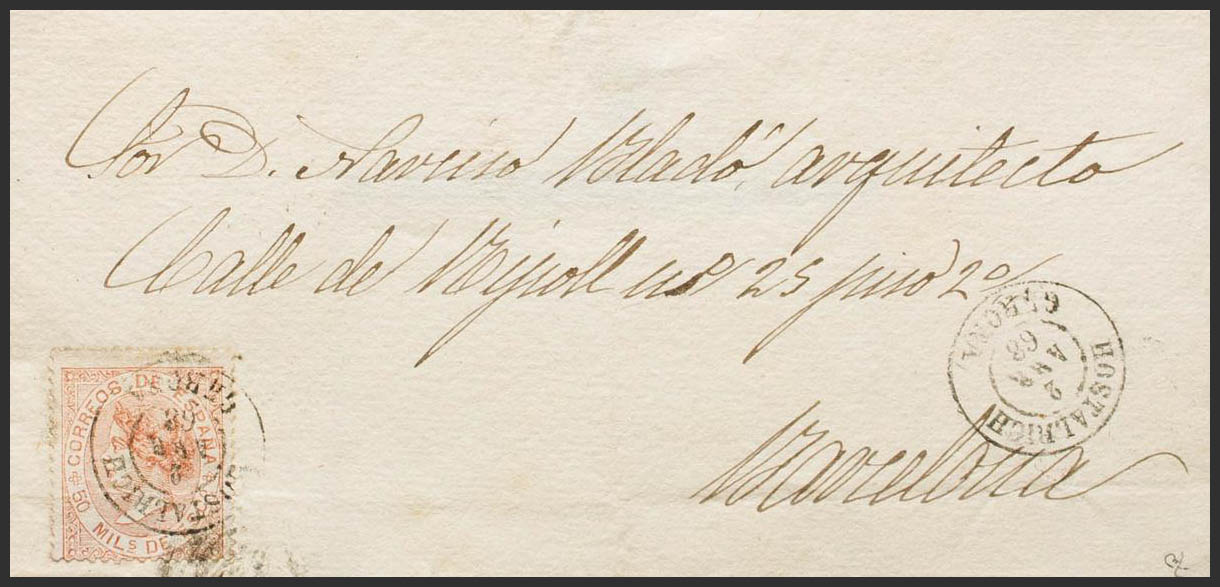 Sor D. Narciso Bladó, arquitecto
Calle de Ripoll nº 25 piso 2º
Barcelona
HOSTALRICH
2
68
GERONA
CORREOS DE ESPAÑA
50 MILS DE
HOSTALRICH
2
68
GERONA